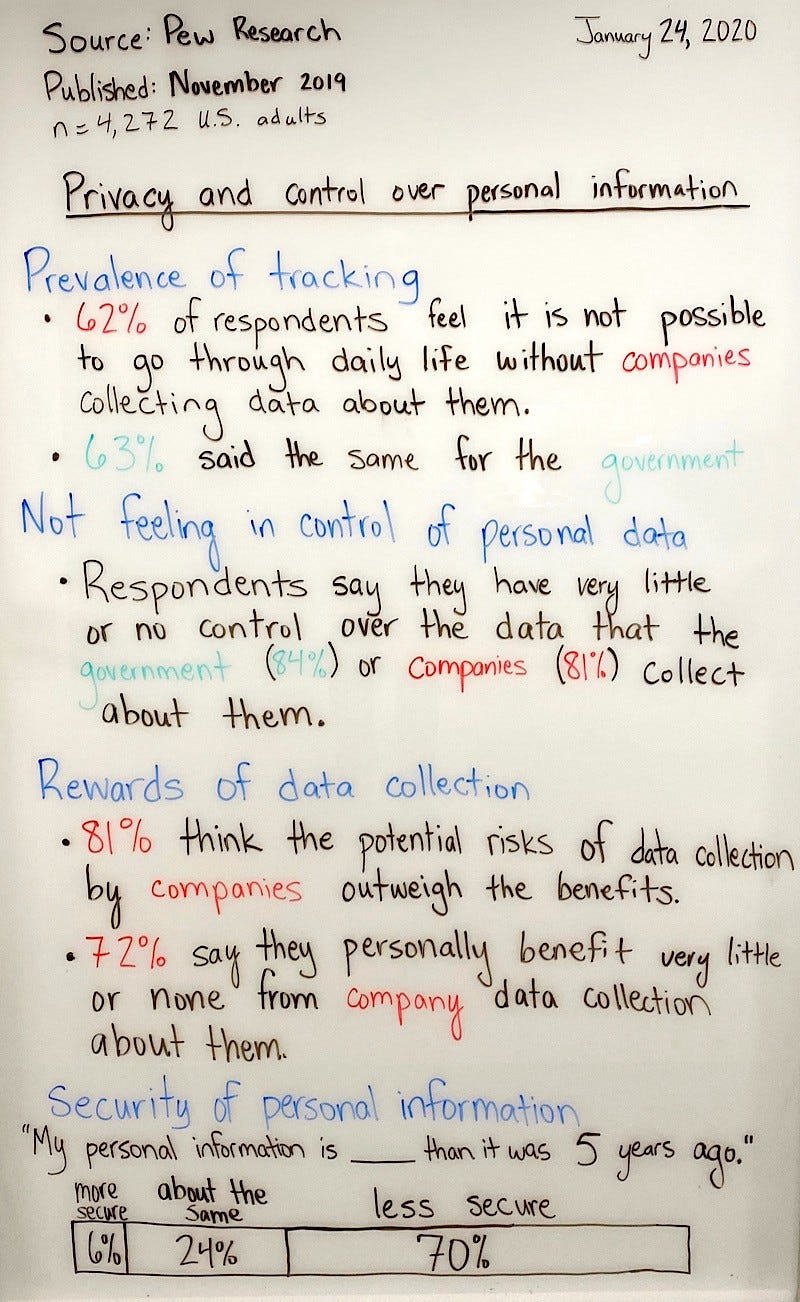 Source: Pew Research
January 24, 2020
Published: November 2019
n = 4,272 U.S. adults
Privacy and control over personal information
Prevalence of tracking
• 62% of respondents feel it is not possible
to go through daily life without companies
collecting data about them.
• 63% said the same for the government
Not feeling in control of personal data
• Respondents say they have very little
or no control over the data that the
government (84%) or companies (81%) collect
about them.
Rewards of data collection
• 81% think the potential risks of data collection
by companies outweigh the benefits.
• 72% say they personally benefit very little
or none from company data collection
about them.
Security of personal information
"My personal information is ____ than it was 5 years ago."
more secure
about the same
less secure
6% 24% 70%